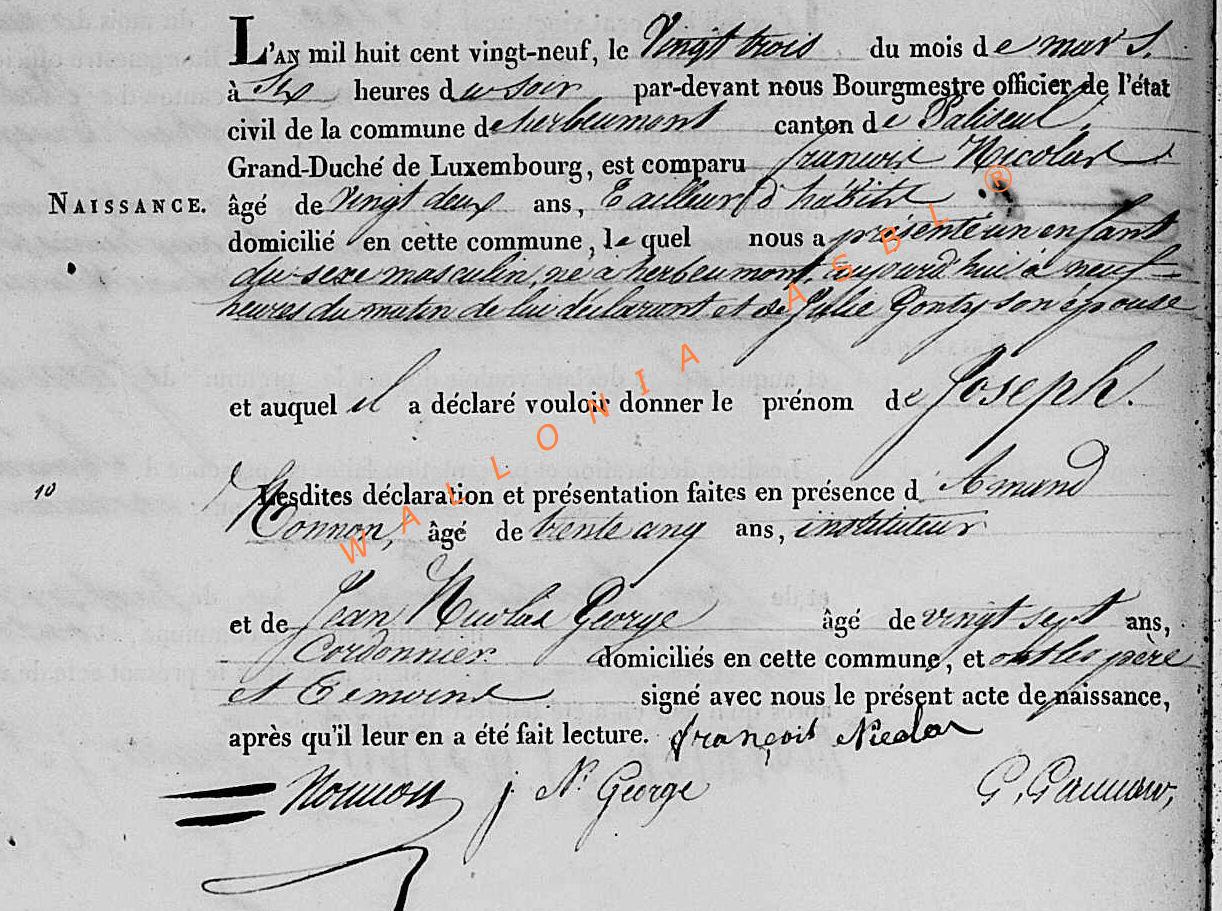 L'AN mil huit cent vingt-neuf, le Vingt trois du mois de mars.
à Six heures du soir par-devant nous Bourgmestre officier de l'état
civil de la commune de herbeumont canton de Paliseul.
Grand-Duché de Luxembourg, est comparu françois Nicolas
NAISSANCE. âgé de Vingt deux ans, Tailleur d'habits
domicilié en cette commune, le quel nous a présenté un enfant
du sexe masculin, né à herbeumont, aujourd'hui à neuf
heures du matin de lui déclarant et de Julie Gonty son épouse
et auquel il a déclaré vouloir donner le prénom de Joseph.
10
Lesdites déclaration et présentation faites en présence d Amand
âgé de trente cinq ans, instituteur
et de Jean Nicolas George âgé de vingt sept ans,
Cordonnier domiciliés en cette commune, et ont les père
et Temoins signé avec nous le présent acte de naissance,
après qu'il leur en a été fait lecture. françois Nicolas
j. N. George
WALLONIA ASBL ®